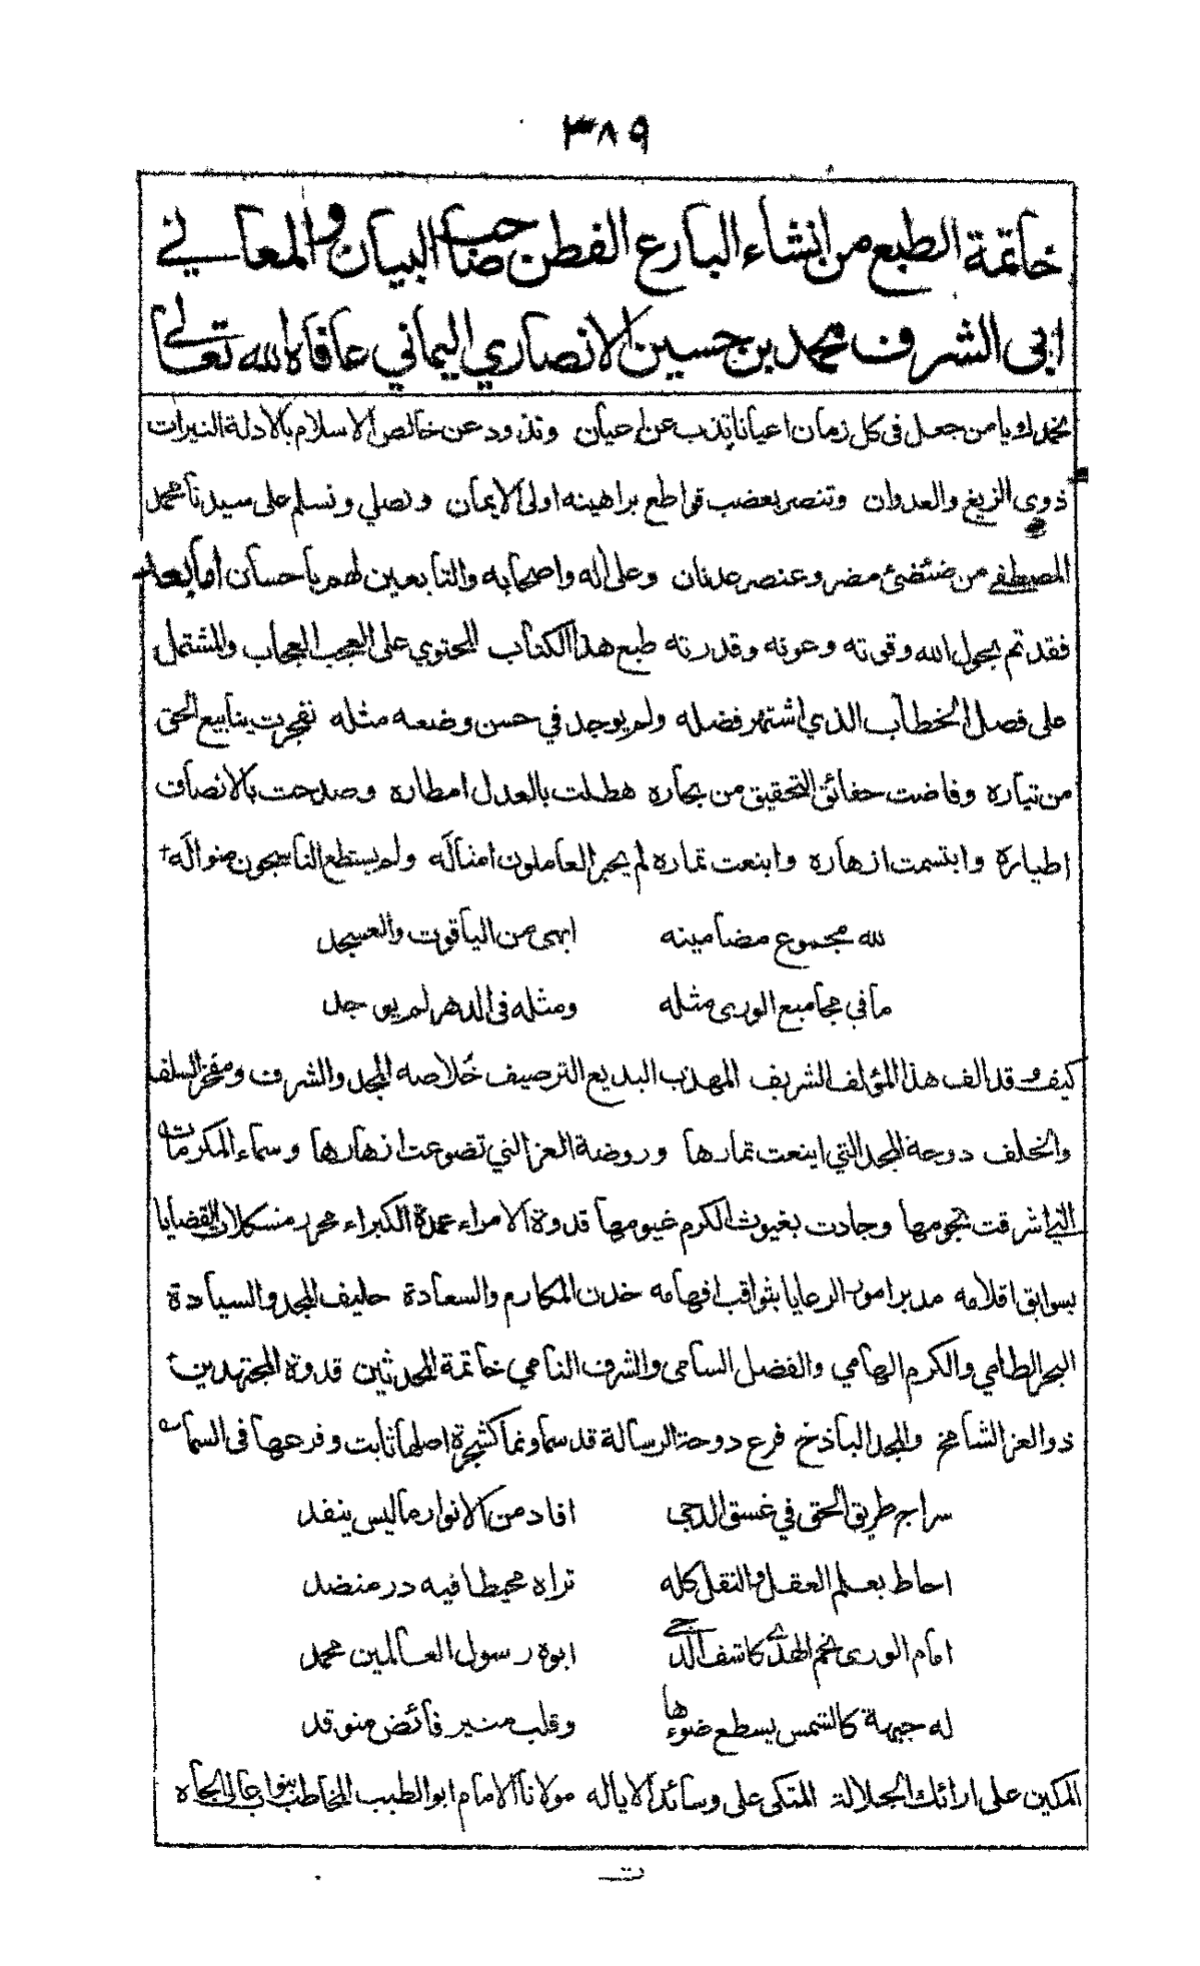 ٣٨٩
خاتمة الطبع من انشاء البارع الفطن صاحب البيان والمعاني
ابي الشرف محمد بن حسين الانصاري اليماني عافاه الله تعالى
نحمدك ويا من جعل في كل زمان اعيانا تذب عن احيان وتذود عن خالص الاسلام بالادلة النيرات
ذوي الزيغ والعدوان وتنصر بعضب قواطع براهينه اولى الايمان ونصلي ونسلم على سيدنا محمد
المصطفى من ضئضئ مضر وعنصر عدنان وعلى اله واصحابه والتابعين لهم باحسان اما بعد
فقد تم بحول الله وقوته وعونه وقدرته طبع هذا الكتاب المحتوي على العجب العجاب والمشتمل
على فصل الخطاب الذي اشتهر فضله ولم يوجد في حسن وضعه مثله تفجرت ينابيع الحق
من تياره وفاضت حقائق التحقيق من بحاره هطلت بالعدل امطاره وصدحت بالانصاف
اطياره وابتسمت ازهاره واينعت ثماره لم يحبر العاملون امثاله ولم يستطع الناسجون منواله
لله مجموع مضامينه ابهى من الياقوت والعسجد
ما في مجاميع الورى مثله ومثله في الدهر لم يوجد
كيف وقد الف هذا المؤلف الشريف المهذب البديع الترصيف خلاصه المجد والشرف ومفخر السلف
والخلف دوحة المجد التي اينعت ثمارها وروضة العز التي تضوعت ازهارها وسماء المكرمات
التي اشرقت نجومها وجادت بغيوث الكرم غيومها قدوة الامراء عمدة الكبراء محرر مشكلات القضايا
بسوابق اقلامه مدبر امور الرعايا بثواقب افهامه خدن المكارم والسعادة حليف المجد والسيادة
البحر الطامي والكرم الهامي والفضل السامى والشرف النامي خاتمة المحدثين قدوة المجتهدين
ذو العز الشامخ والمجد الباذخ فرع دوحة الرسالة قد سما ونما كشجرة اصلها ثابت وفرعها في السماء
سراج طريق الحق في غسق الدجى افاد من الانوار ما ليس ينفد
احاط بعلم العقل والنقل كله تراه محيطا فيه در منضد
امام الورى نجم الهدى كاشف الدجى ابوه رسول العالمين محمد
له جبهة كالشمس يسطع ضوءها وقلب منير فائض متوقد
المكين على ارائك الجلالة المتكى على وسائد الاياله مولانا الامام ابو الطيب المخاطب بنواب عالى الجاه